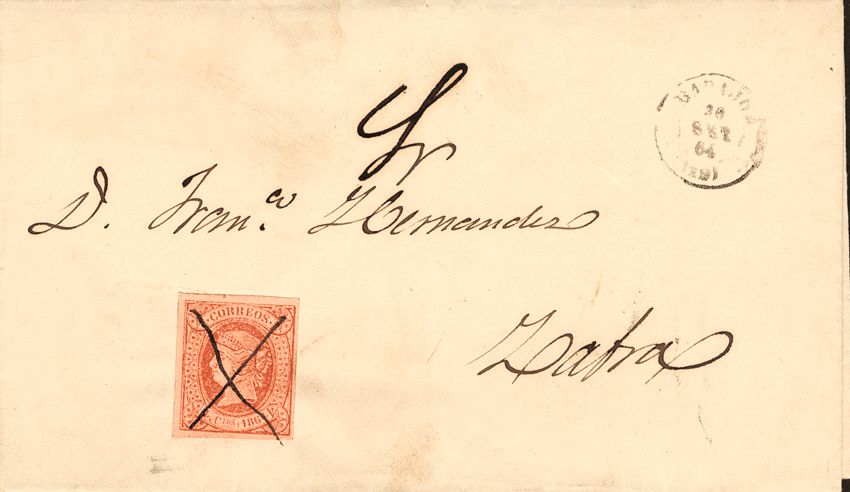 Sr
D. Franco. Hernandez
Zafra
BADAJOZ
20
SET
64
CORREOS
CTOS 186